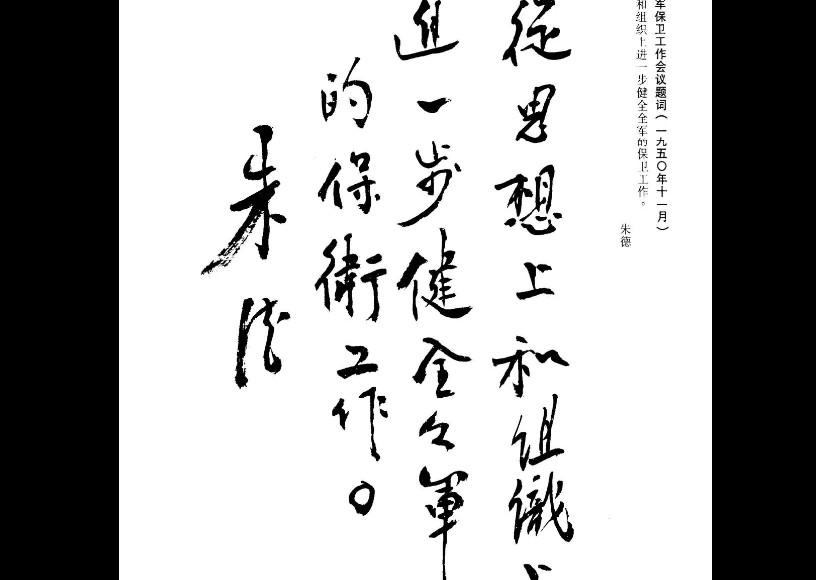 军保卫工作会议题词(一九五〇年十一月)
和组织上进一步健全全军的保卫工作。
朱德
從思想上和组織上
進一步健全々軍
的保衛工作。
朱德